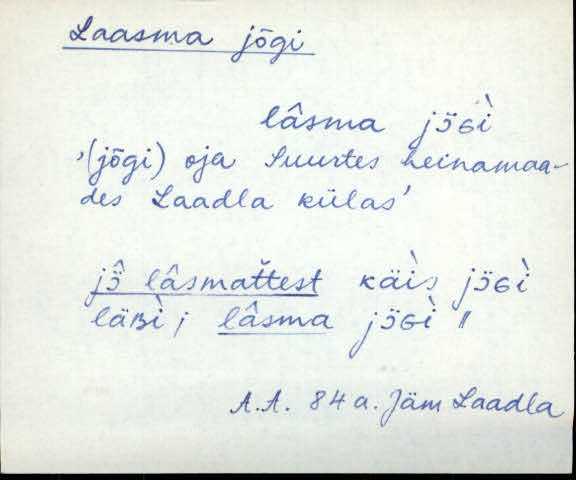 Laasma jõgi
lâsma jɔ̈ɢì
‚(jõgi) oja Suurtes heinamaa-
des Laadla külas’
jɔ̈̂ lâsmaťtest käìs jɔ̈ɢì
läʙì; lâsma jɔ̈ɢì "
A.A. 84 a. Jäm Laadla